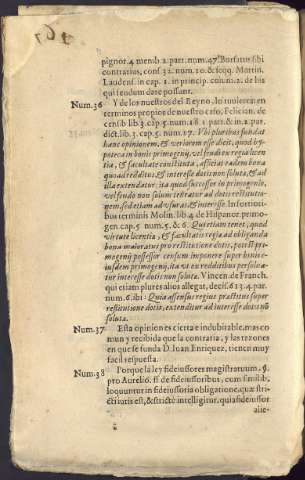 pignor. 4. memb. 2. part. num. 47. Bursatus sibi
contrarius, cons. 32. num. 10. & seqq. Martin.
Laudens. in cap. 1. in princip. col. n. 2. de his
qui feudum dare possunt.
Num. 36 Y de los nuestros del Reyno, lo tuvieron en
terminos propios de nuestro caso, Felician. de
censib. lib. 3. cap. 5. num. 18. 1. part. & in 2. part.
dict. lib. 3. cap. 5. num. 17. Vbi pluribus fundat
hanc opinionem, & veriorem esse dicit, quod hy-
potheca in bonis primogenij, vel feudi ex regia licen-
tia, & facultate constituta, afficiat eadem bona
quoad redditus, & interesse dotis non solutæ, & ad
illa extendatur: ita quod successor in primogenio,
vel feudo non solum teneatur ad dotis restitutio-
nem, sed etiam ad usuras, & interesse. In fortiori-
bus terminis Molin. lib. 4. de Hispanor. primo-
gen. cap. 5. num. 5. & 6. Qui etiam tenet, quod
virtute licentiæ, & facultatis regiæ ad obliganda
bona maioratus pro restitutione dotis, potest pri-
mogenij possessor censum imponere super bonis e-
iusdem primogenij, ita ut ex redditibus persolva-
tur interesse dotis non solutæ. Vincen. de Franch.
qui etiam plures alios allegat, decis. 613. 4. par.
num. 6. ibi: Quia assensus regius præstitus super
restitutione dotis, extenditur ad interesse dotis non
solutæ.
Num. 37 Esta opinion es cierta e indubitable, mas co-
mun y recibida que la contraria, y las razones
en que se funda D. Iuan Enriquez, tienen muy
facil respuesta.
Num. 38 Porque la ley fideiussores magistratuum, §.
pro Aurelio. ff. de fideiussoribus, cum similib.
loquuntur in fideiussoria obligatione, quæ stri-
cti iuris est, & strictè intelligitur, quia fideiussor
alie-